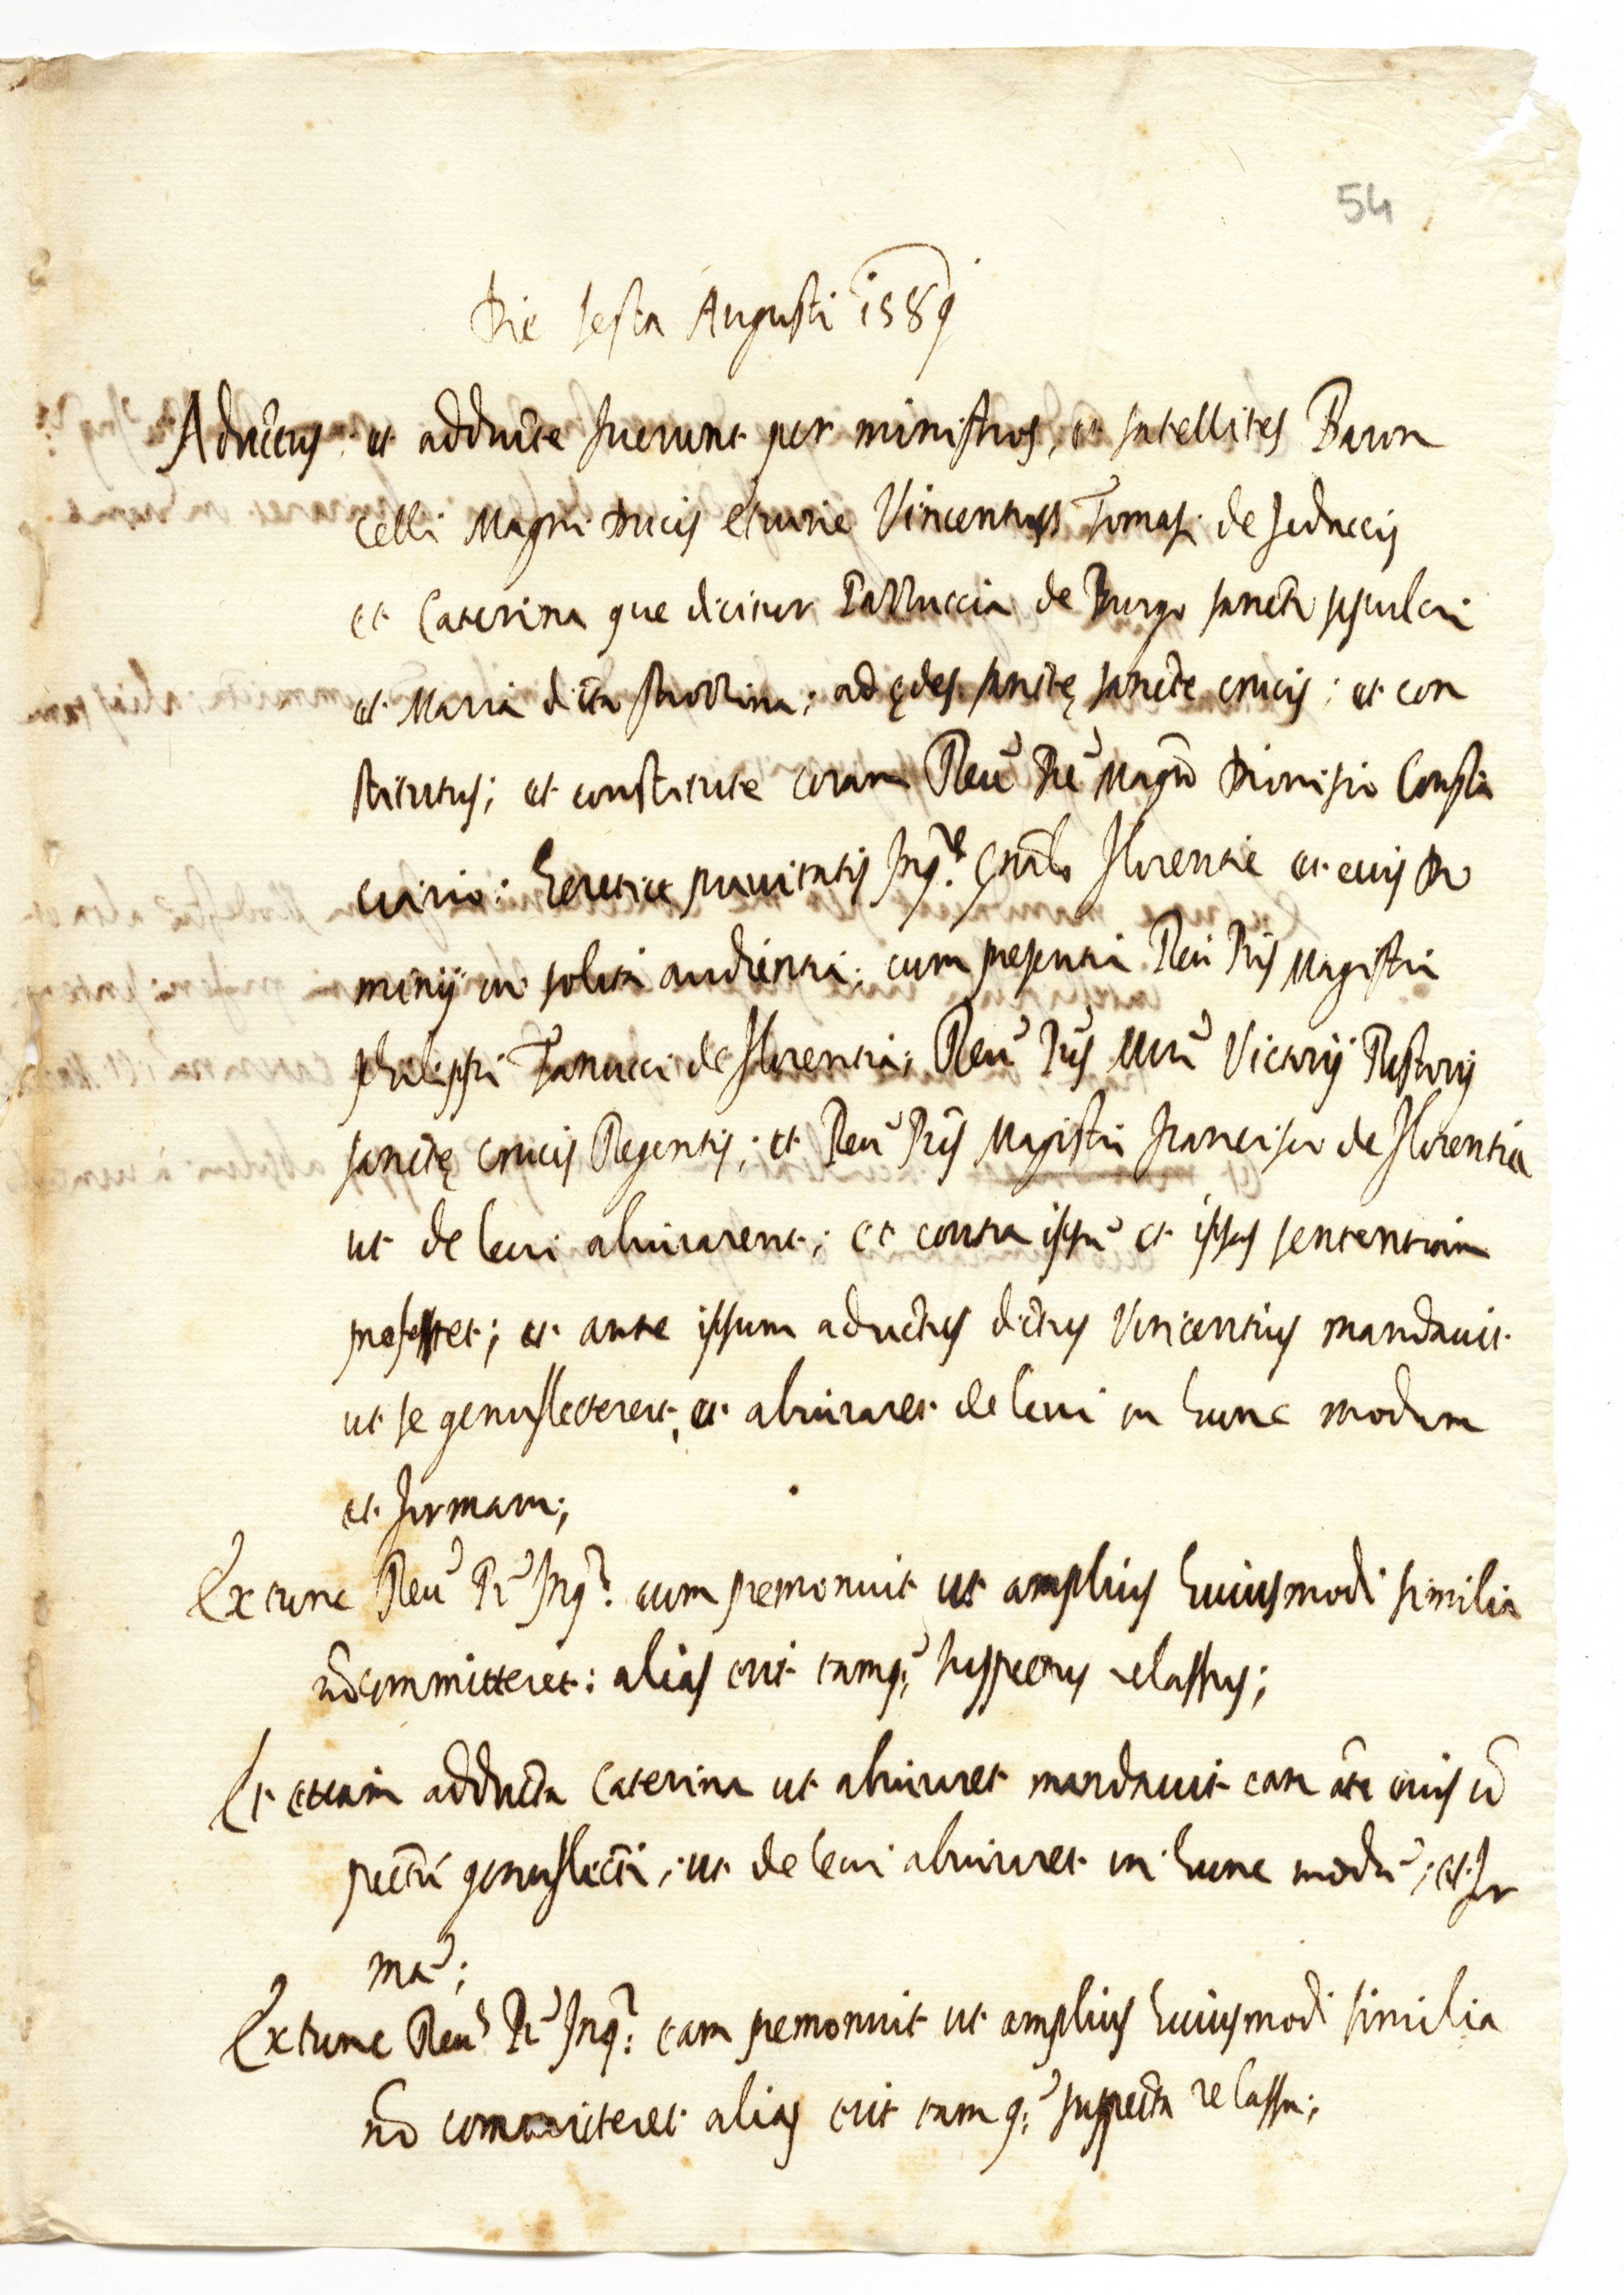 54
Die sesta Augusti 1589
Aductus et adducte fuerunt per ministros, et satellites Baron
celli Magni Ducis etrurie Vincentius Tomasi de
et Caterina que dicitur Pazzuccia de Burgo sancti sepulcri
et Maria dicta ; ad ędes sanctę sancte crucis; et con
stitutus; et constitute coram Reũ Prẽ Magrõ Dionisio Consta
ciario: heretice pravitatis Inq.re gñali florentie et eius Do
minij in solita audientia; cum presentia Reũ Pris Magistri
philippi Tanucci de florentia; Reũ Pris Mrĩ Victorij Pistorij
sanctę crucis Regentis; et Reũ Pris Magistri francisci de florentia
ut de levi abiurarent; et contra ipsũ et ipsas sententiam
; et ante ipsum aductus dictus Vincentius mandavit
ut se genuflecteret, et abiuraret de levi in hunc modum
et formam;
Ex tunc Reũ Pr Inq.r eum premonuit ut amplius huiusmodi similia
nõ committeret: alias erit tamq; suspectus relassus;
Et etiam adducta Caterina ut abiuraret mandavit eam ãte eius cõ
pectũ genuflecti; ut de levi abiuraret in hunc modũ; et for
mã;
Ex tunc Reũ Pr Inq.r eam premonuit ut amplius huiusmodi similia
nõ committeret alias erit tam q; suspecta relassa;